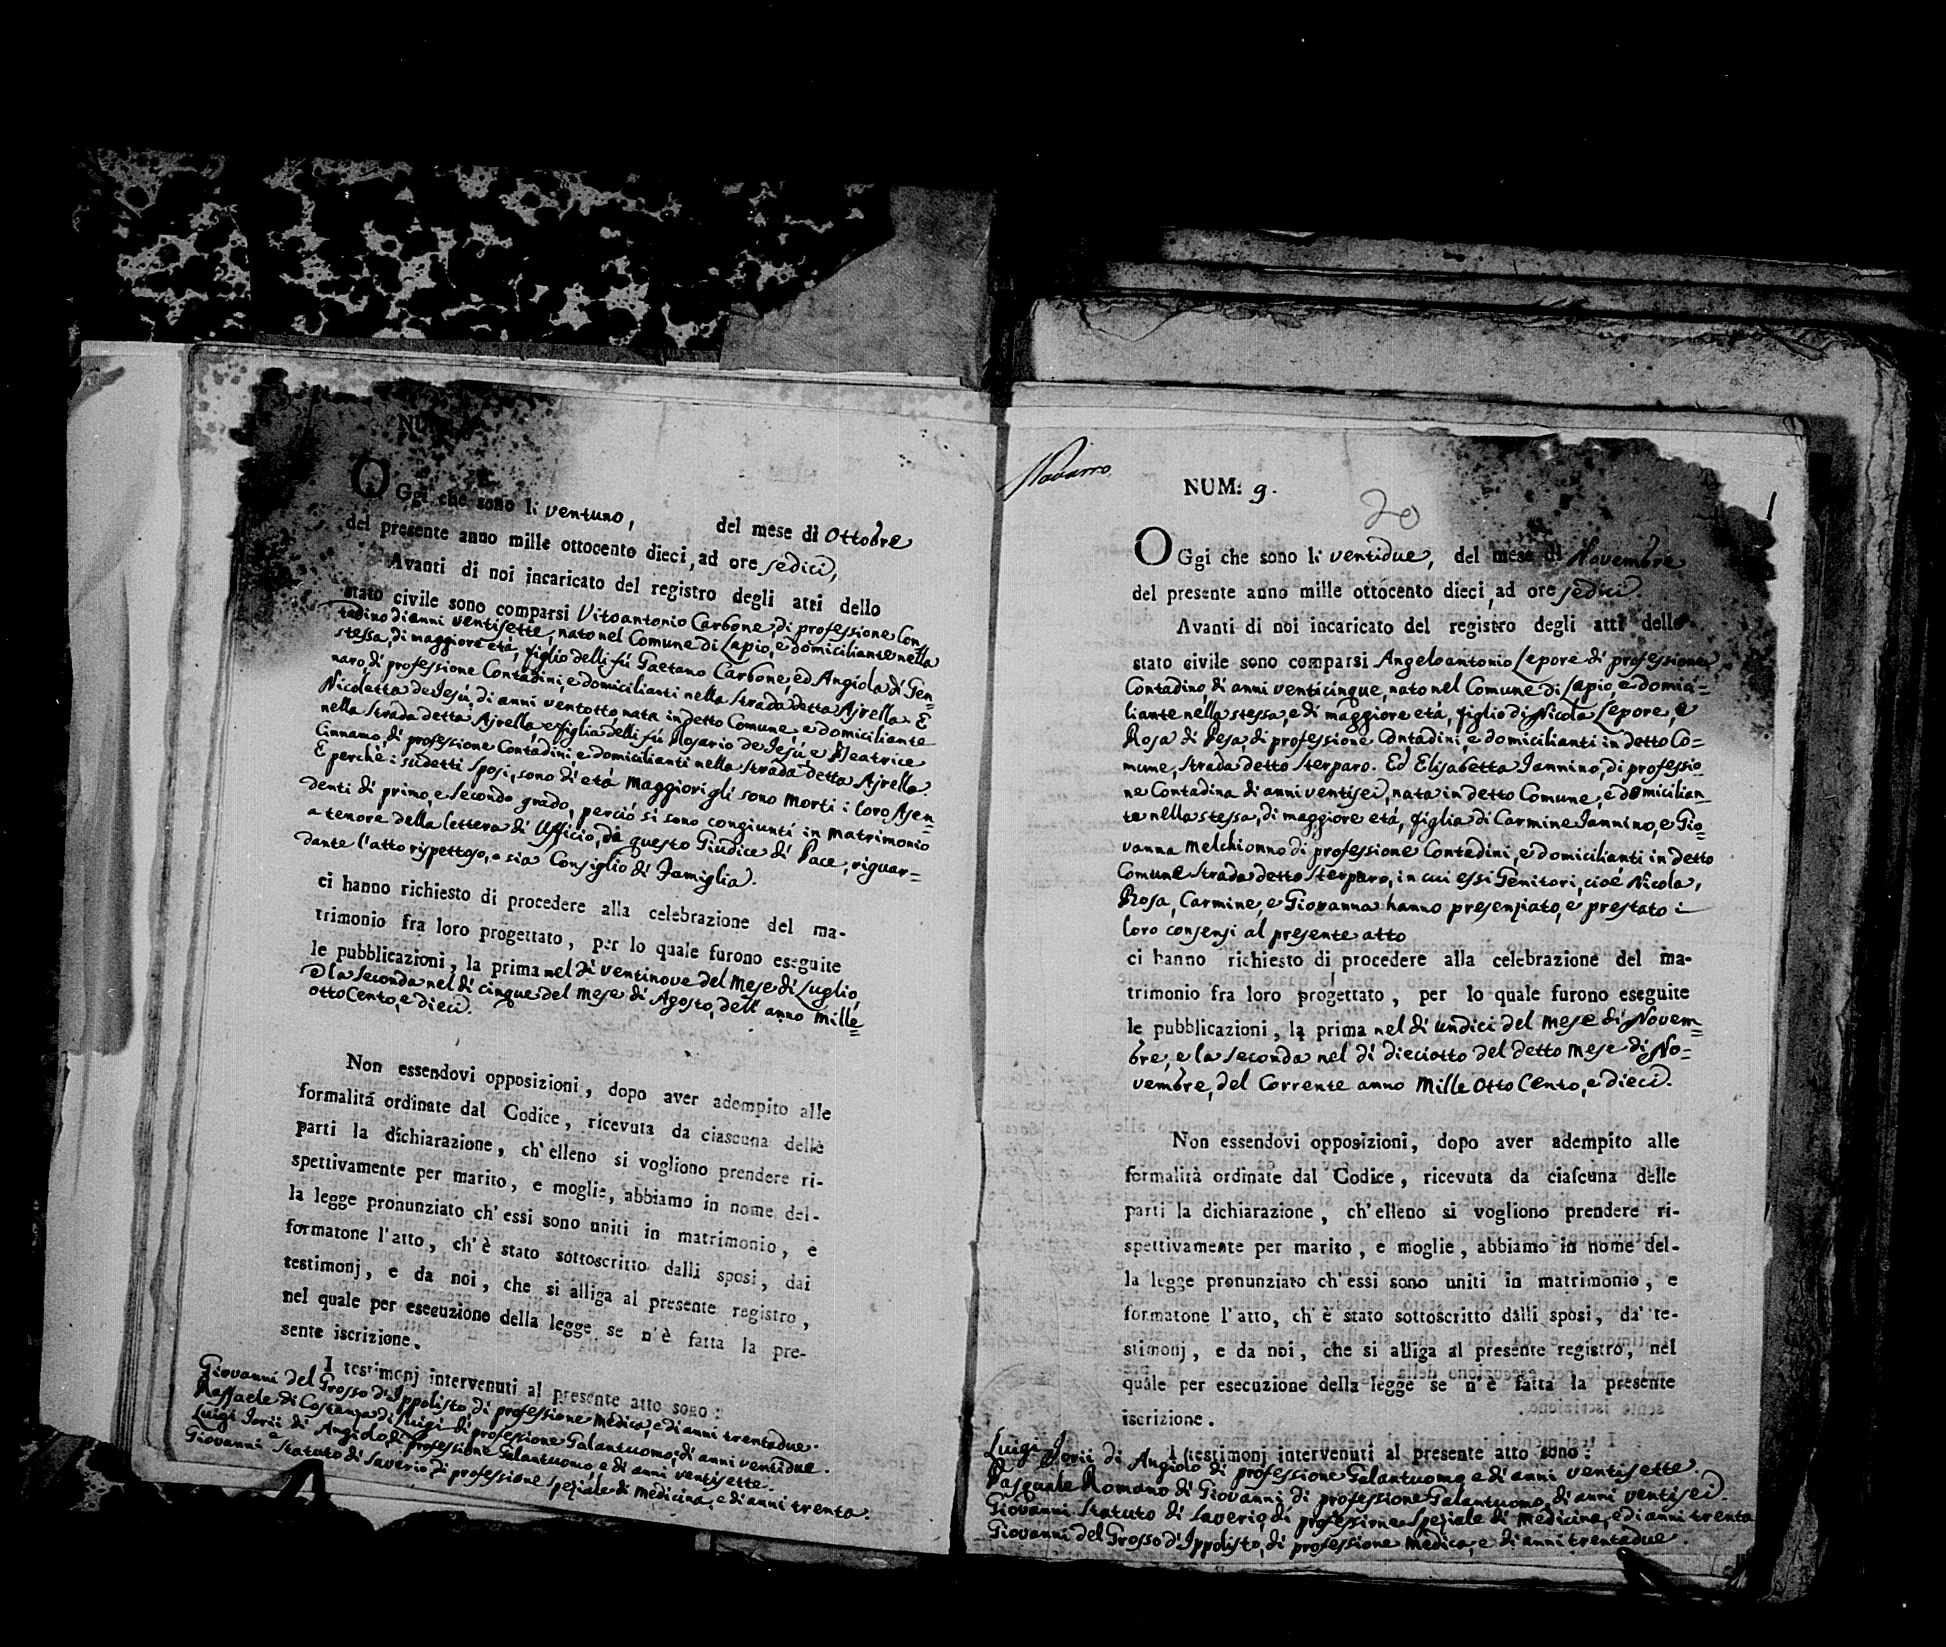 NUM:
OGgi che sono li ventuno, del mese di Ottobre
del presente anno mille ottocento dieci, ad ore sedici,
Avanti di noi incaricato del registro degli atti dello
stato civile sono comparsi Vitoantonio Carbone, di professione Con=
tadino di anni ventisette, nato nel Comune di Lapio, e domiciliante nella
stessa, di maggiore età, figlio delli fù Gaetano Carbone, ed Angiola di Gen=
naro, di professione Contadini, e domicilianti nella Strada detta Ajrella. E
Nicoletta de Jesù, di anni ventotto, nata in detto Comune, e domiciliante
nella Strada detta Ajrella, e figlia delli fù Rosario de Jesù, e Beatrice
Cinnamo, di professione Contadini, e domicilianti nella Strada detta Ajrella.
E perchè i sudetti Sposi, sono di età Maggiori gli sono Morti i loro Asen=
denti di primo, e secondo grado, perciò si sono congiunti in Matrimonio
a tenore della lettera di Ufficio, di questo Giudice di Pace, riguar=
dante l'atto rispettoso, o sia Consiglio di Famiglia.
ci hanno richiesto di procedere alla celebrazione del ma-
trimonio fra loro progettato, per lo quale furono eseguite
le pubblicazioni, la prima nel dì ventinove del Mese di Luglio,
e la seconda nel dì cinque del Mese di Agosto, dell'anno Mille=
ottoCento, e dieci.
Non essendovi opposizioni, dopo aver adempito alle
formalitá ordinate dal Codice, ricevuta da ciascuna delle
parti la dichiarazione, ch'elleno si vogliono prendere ri-
spettivamente per marito, e moglie, abbiamo in nome del-
la legge pronunziato ch'essi sono uniti in matrimonio, e
formatone l'atto, ch'è stato sottoscritto dalli sposi, dai
testimonj, e da noi, che si alliga al presente registro,
nel quale per esecuzione della legge se n'è fatta la pre-
sente iscrizione.
I testimonj intervenuti al presente atto sono:
Giovanni del Grosso d'Ippolisto di professione Medico, e di anni trentadue.
Raffaele di Costanza di Luigi di professione Galantuomo, di anni ventidue.
Luigi Iorii di Angiolo, di professione Galantuomo, e di anni ventisette.
Giovanni Statuto di Saverio, di professione Speziale di Medicina, e di anni trenta.
Navarro
NUM: 9.
20
1
OGgi che sono li ventidue, del mese di Novembre
del presente anno mille ottocento dieci, ad ore sedici.
Avanti di noi incaricato del registro degli atti dello
stato civile sono comparsi Angeloantonio Lepore di professione
Contadino, di anni venticinque, nato nel Comune di Lapio, e domici=
liante nella stessa, e di maggiore età, figlio di Nicola Lepore, e
Rosa di Pesa, di professione Contadini, e domicilianti in detto Co=
mune, Strada detto Sterparo. Ed Elisabetta Iannino, di professio=
ne Contadina di anni ventisei, nata in detto Comune, e domicilian=
te nella stessa, di maggiore età, figlia di Carmine Iannino, e Gio=
vanna Melchionno di professione Contadini, e domicilianti in detto
Comune Strada detto Sterparo, in cui essi Genitori, cioè Nicola,
Rosa, Carmine, e Giovanna hanno presenziato, e prestato i
loro consensi al presente atto
ci hanno richiesto di procedere alla celebrazione del ma-
trimonio fra loro progettato, per lo quale furono eseguite
le pubblicazioni, la prima nel dì undici del Mese di Novem=
bre, e la seconda nel dì dieciotto del detto Mese di No=
vembre, del Corrente anno Mille Otto Cento, e dieci.
Non essendovi opposizioni, dopo aver adempito alle
formalità ordinate dal Codice, ricevuta da ciascuna delle
parti la dichiarazione, ch'elleno si vogliono prendere ri-
spettivamente per marito, e moglie, abbiamo in nome del-
la legge pronunziato ch'essi sono uniti in matrimonio, e
formatone l'atto, ch'è stato sottoscritto dalli sposi, da' te-
stimonj, e da noi, che si alliga al presente registro, nel
quale per esecuzione della legge se n'è fatta la presente
iscrizione.
I testimonj intervenuti al presente atto sono:
Luigi Iorii di Angiolo di professione Galantuomo, e di anni ventisette.
Pasquale Romano di Giovanni di professione Galantuomo, di anni ventisei.
Giovanni Statuto di Saverio, di professione Speziale di Medicina, e di anni trenta
Giovanni del Grosso d'Ippolisto, di professione Medico, e di anni trentadue.